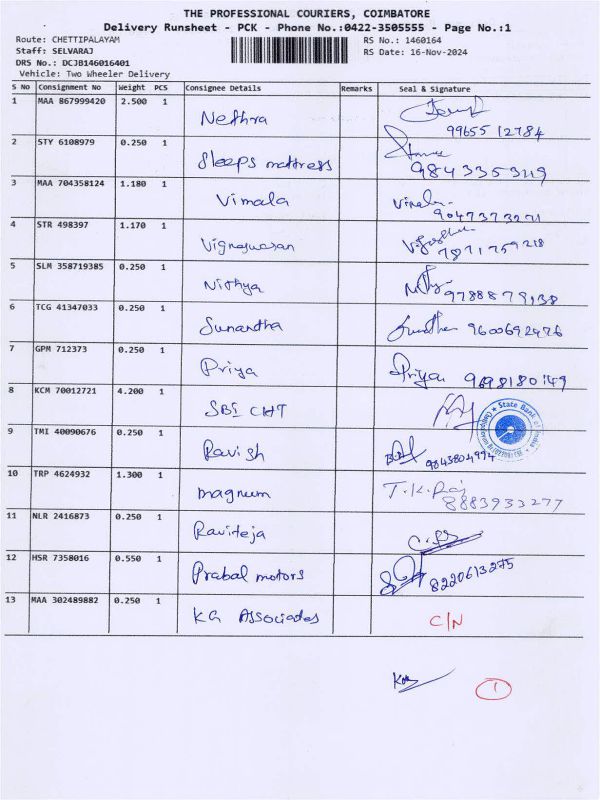 THE PROFESSIONAL COURIERS, COIMBATORE
Delivery Runsheet - PCK - Phone No.:0422-3505555 - Page No.:1
Route: CHETTIPALAYAM RS No.: 1460164
Staff: SELVARAJ RS Date: 16-Nov-2024
DRS No.: DCJB146016401
Vehicle: Two Wheeler Delivery
S No Consignment No Weight PCS Consignee Details Remarks Seal & Signature
1 MAA 867999420 2.500 1 Nethra 99655 12784
2 STY 6108979 0.250 1 Sleeps mattress 9843353119
3 MAA 704358124 1.180 1 Vimala Vimala 9047373271
4 STR 498397 1.170 1 Vignajwaran 7871759218
5 SLM 358719385 0.250 1 Nithya 9788879138
6 TCG 41347033 0.250 1 Sunantha 9600692476
7 GPM 712373 0.250 1 Priya Priya 9698180149
8 KCM 70012721 4.200 1 SBI CHT State Bank of India
9 TMI 40090676 0.250 1 Ravish 9843804994
10 TRP 4624932 1.300 1 magnum T.K.Raj 8883933277
11 NLR 2416873 0.250 1 Raviteja
12 HSR 7358016 0.550 1 Prabal motors 8220613275
13 MAA 302489882 0.250 1 KG Associates C/N
1